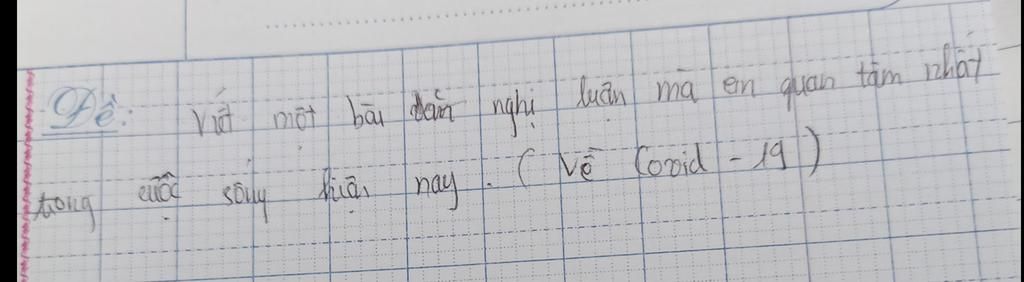 Đề: Viết một bài văn nghị luận mà em quan tâm nhất
trong cuộc sống hiện nay. (Về Covid - 19)